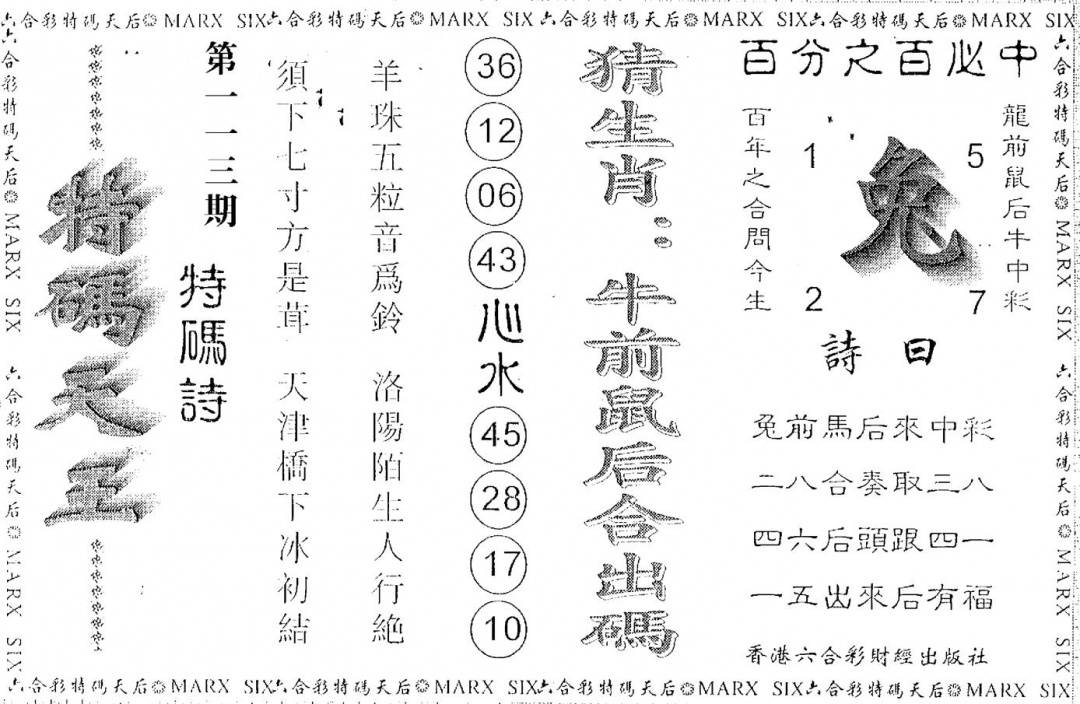 六合彩特碼天后 MARX SIX六合彩特碼天后 MARX SIX六合彩特碼天后 MARX SIX六合彩特碼天后 MARX SIX
六合彩特碼天后 MARX SIX 六合彩特碼天后 MARX SIX
特碼天王
第一一三期
特碼詩
須下七寸方是葺 天津橋下冰初結
羊珠五粒音爲鈴 洛陽陌生人行絕
36
12
06
43
心水
45
28
17
10
猜生肖：牛前鼠后合出碼
百分之百必中
百年之合問今生
1
5
兔
2
7
龍前鼠后牛中彩
詩曰
兔前馬后來中彩
二八合奏取三八
四六后頭跟四一
一五出來后有福
香港六合彩財經出版社
六合彩特碼天后 MARX SIX 六合彩特碼天后 MARX SIX
六合彩特碼天后 MARX SIX六合彩特碼天后 MARX SIX六合彩特碼天后 MARX SIX六合彩特碼天后 MARX SIX